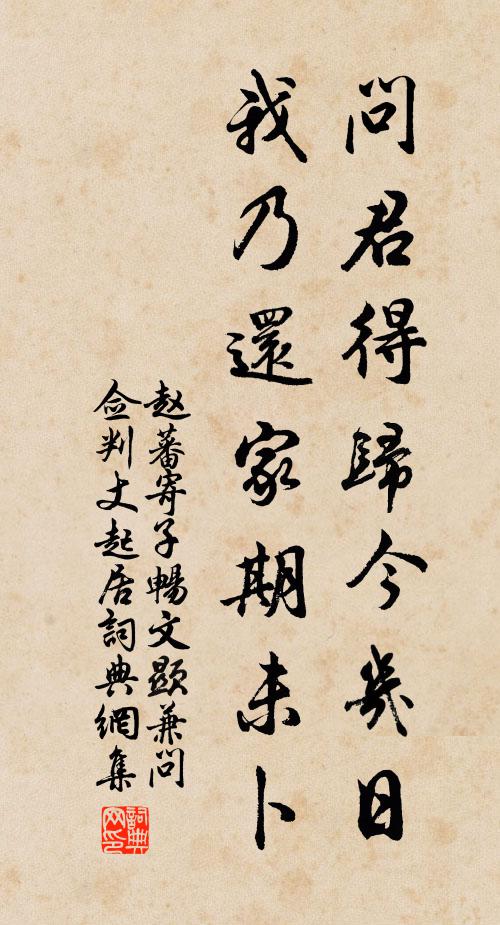 問君得歸今幾日
我乃還家期未卜
赵蕃寄子暢文顯兼問
佥判丈起居詞典網集
詞典网印